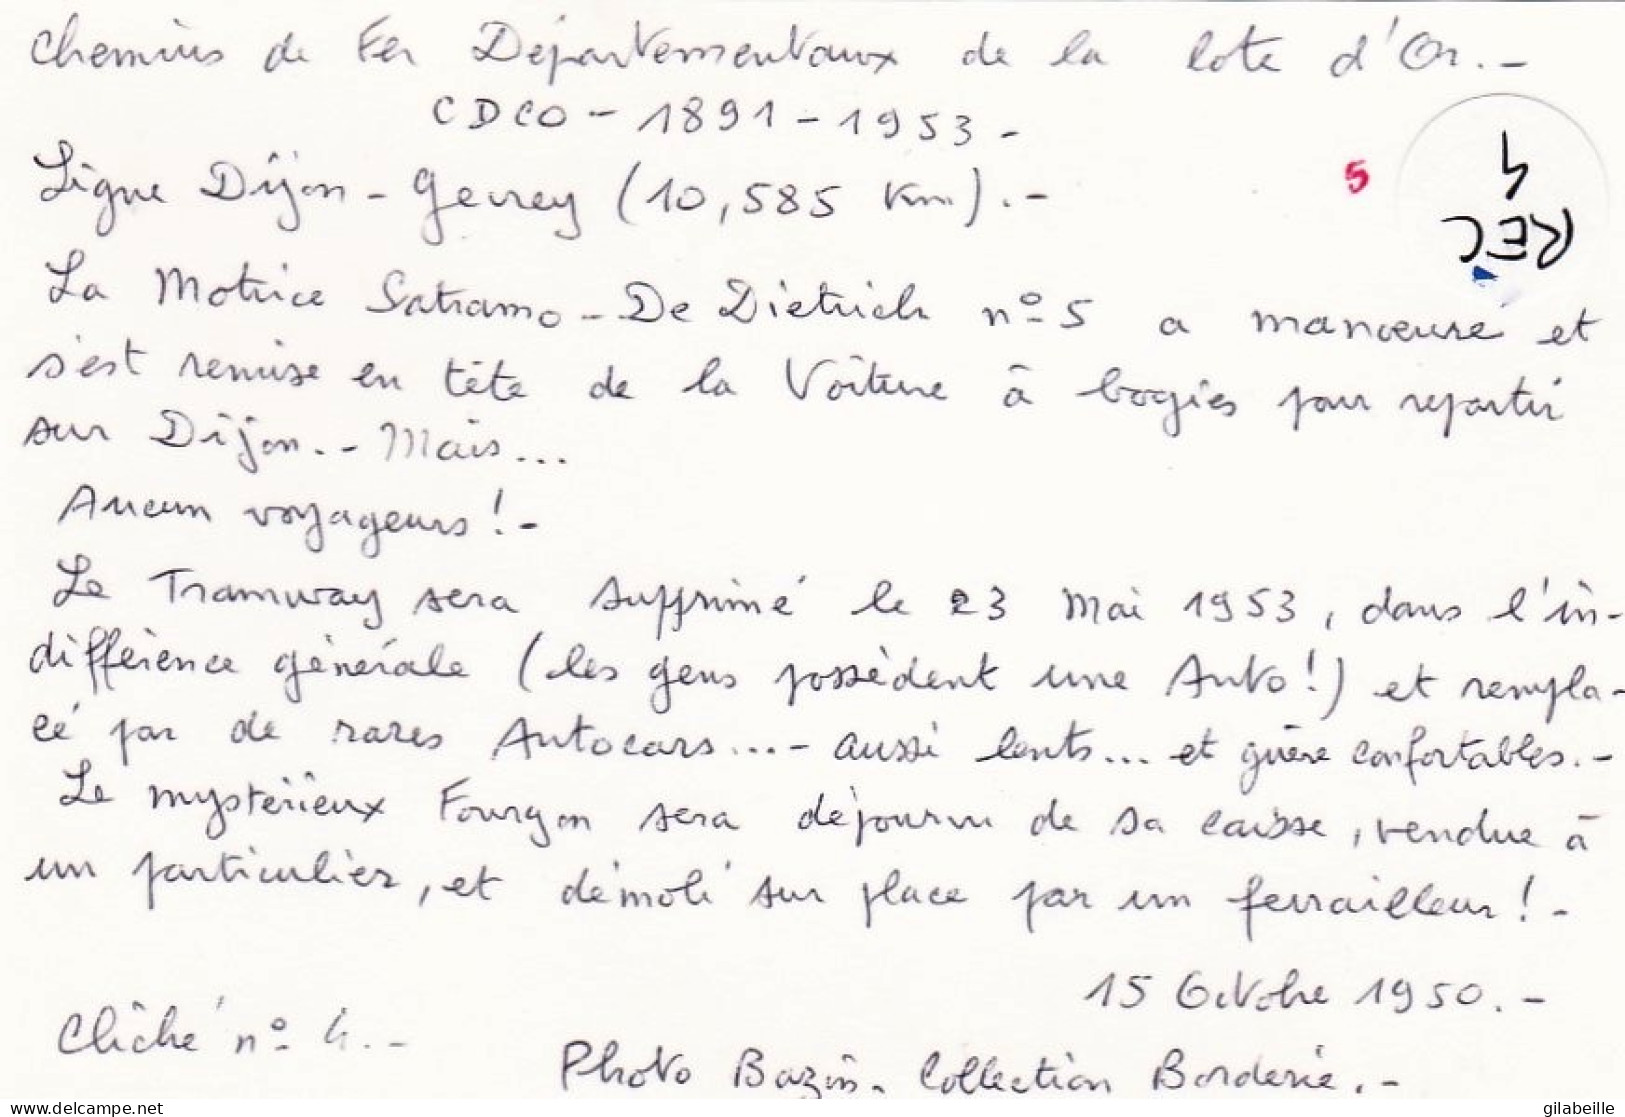 Chemins de Fer Départementaux de la Cote d'Or.-
CDCO - 1891 - 1953 -
Ligne Dijon - Gevrey (10,585 Km).-
5
REC
4
La Motrice Satramo - De Dietrich n° 5 a manœuvré et
s'est remise en tête de la Voiture à bogies pour repartir
sur Dijon.- Mais...
Aucun voyageurs !-
Le Tramway sera supprimé le 23 Mai 1953, dans l'in-
différence générale (les gens possèdent une Auto !) et rempla-
cé par de rares Autocars...- aussi lents... et guère confortables.-
Le mystérieux Fourgon sera dépourvu de sa caisse, vendue à
un particulier, et démoli sur place par un ferrailleur !-
15 Octobre 1950.-
Cliché n° 4.-
Photo Bazin. Collection Borderie.-
delcampe.net
gilabeille